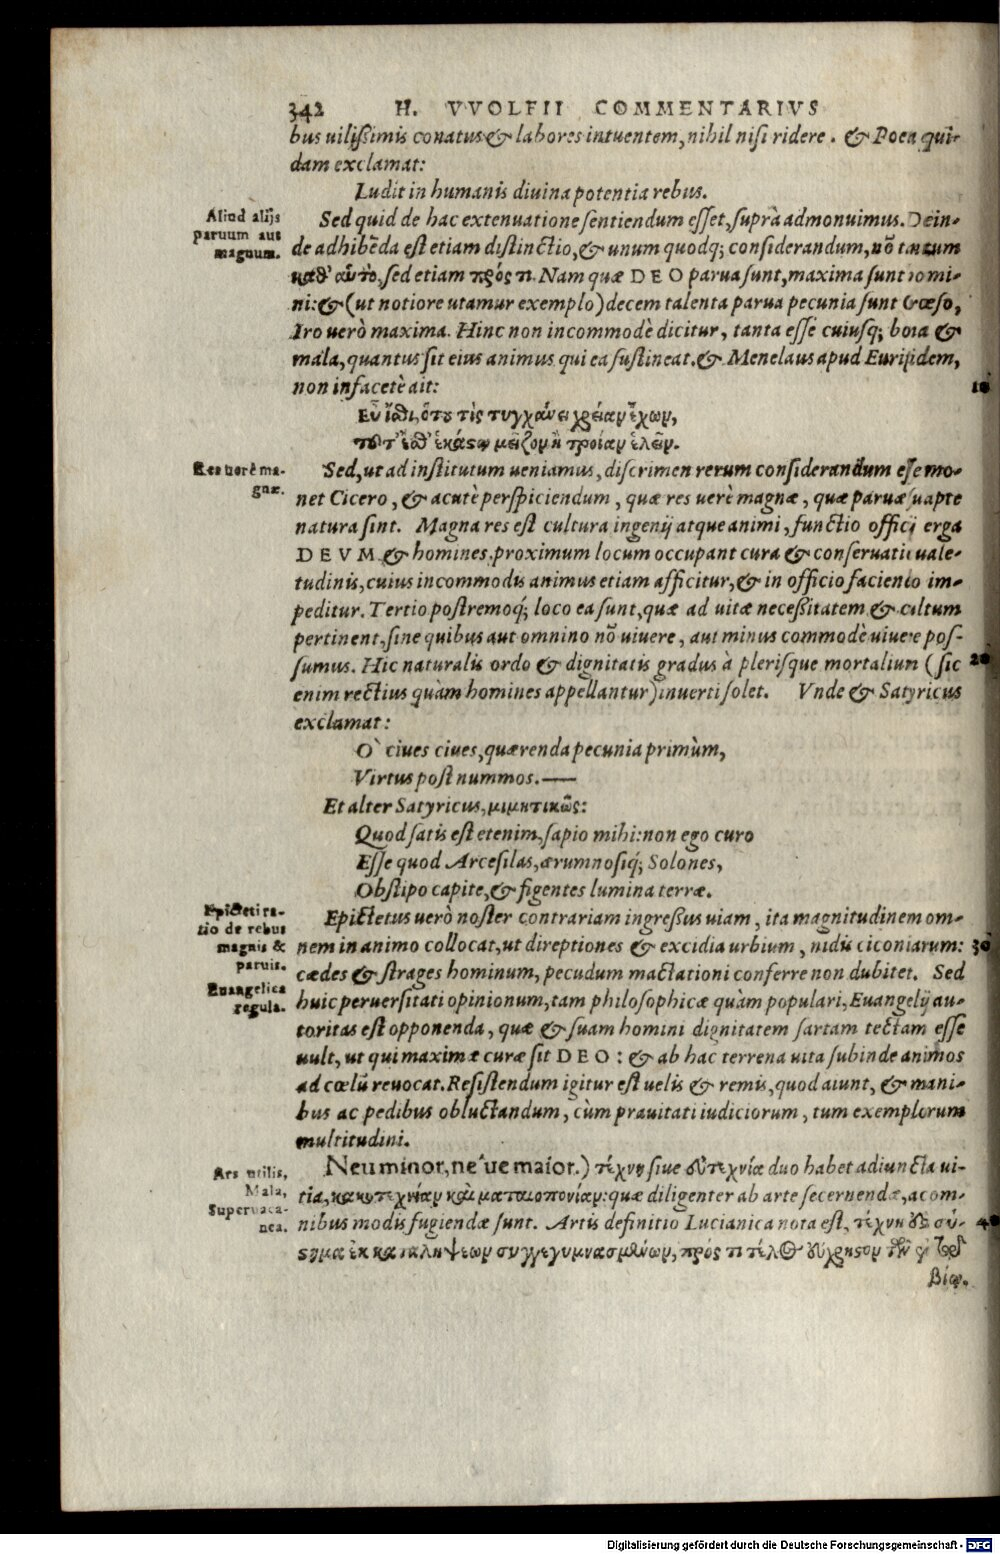 342 H. VVOLFII COMMENTARIVS
bus uilißimis conatus & labores intuentem, nihil nisi ridere. & Poeta qui-
dam exclamat:
Ludit in humanis diuina potentia rebus.
Aliud alijs
paruum aut
magnum.
Sed quid de hac extenuatione sentiendum esset, suprà admonuimus. Dein-
de adhibēda est etiam distinctio, & unum quodq; considerandum, nō tantum
καθ' αὑτὸ, sed etiam πρός τι. Nam quæ DEO parua sunt, maxima sunt homi-
ni: & (ut notiore utamur exemplo) decem talenta parua pecunia sunt Crœso,
Iro uerò maxima. Hinc non incommodè dicitur, tanta esse cuiusq; bona &
mala, quantus sit eius animus qui ea sustineat. & Menelaus apud Euripidem,
non infacetè ait:
10
Εὖ ἴσθι, ὅτου τὶς τυγχάνει χρείαν ἔχων,
τοῦτ' ἔσθ' ἑκάστῳ μεῖζον ἢ τροίαν ἑλεῖν.
Res uerè ma-
gnæ.
Sed, ut ad institutum ueniamus, discrimen rerum considerandum esse mo-
net Cicero, & acutè perspiciendum, quæ res uerè magnæ, quæ paruæ suapte
natura sint. Magna res est cultura ingenij atque animi, functio officij erga
DEVM & homines. proximum locum occupant cura & conseruatio uale-
tudinis, cuius incommodis animus etiam afficitur, & in officio faciendo im-
peditur. Tertio postremoq; loco ea sunt, quæ ad uitæ necessitatem & cultum
pertinent, sine quibus aut omnino nō uiuere, aut minus commodè uiuere pos-
sumus. Hic naturalis ordo & dignitatis gradus à plerisque mortalium (sic
20
enim rectius quàm homines appellantur) inuerti solet. Vnde & Satyricus
exclamat:
O` ciues ciues, quærenda pecunia primùm,
Virtus post nummos.——
Et alter Satyricus, μιμητικῶς:
Quod satis est etenim, sapio mihi: non ego curo
Esse quod Arcesilas, ærumnosiq; Solones,
Obstipo capite, & figentes lumina terræ.
Epicteti ra-
tio de rebus
magnis &
paruis.
Euangelica
regula.
Epictetus uerò noster contrariam ingressus uiam, ita magnitudinem om-
nem in animo collocat, ut direptiones & excidia urbium, nidis ciconiarum:
30
cædes & strages hominum, pecudum mactationi conferre non dubitet. Sed
huic peruersitati opinionum, tam philosophicæ quàm populari, Euangelij au-
toritas est opponenda, quæ & suam homini dignitatem sartam tectam esse
uult, ut qui maximæ curæ sit DEO: & ab hac terrena uita subinde animos
ad cœlū reuocat. Resistendum igitur est uelis & remis, quod aiunt, & mani-
bus ac pedibus obluctandum, cùm prauitati iudiciorum, tum exemplorum
multitudini.
Ars utilis,
Mala,
Superuaca-
nea.
Neu minor, neúe maior.) τέχνη siue εὐτεχνία duo habet adiuncta ui-
tia, κακοτεχνίαν καὶ ματαιοπονίαν: quæ diligenter ab arte secernendæ, ac om-
nibus modis fugiendæ sunt. Artis definitio Lucianica nota est, τέχνη δὲ σύ-
40
στημα ἐκ καταλήψεων συγγεγυμνασμένων, πρός τι τέλος εὔχρηστον τῶν ἐν τῷ
βίῳ.
Digitalisierung gefördert durch die Deutsche Forschungsgemeinschaft - DFG